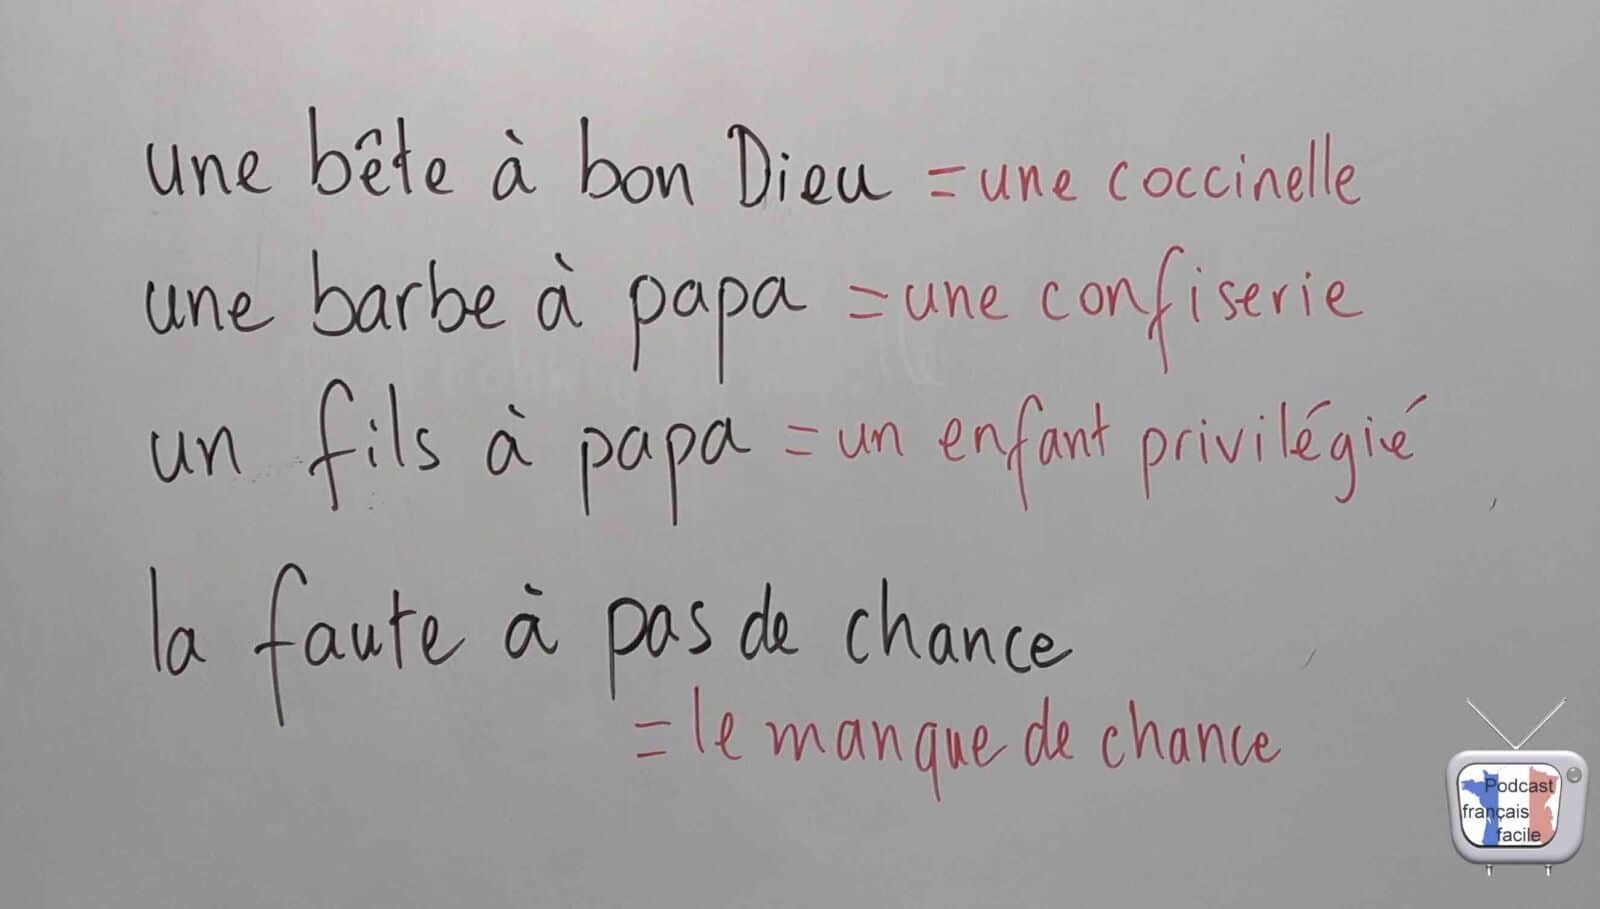 une bête à bon Dieu = une coccinelle
une barbe à papa = une confiserie
un fils à papa = un enfant privilégié
la faute à pas de chance
= le manque de chance
Podcast
français
facile